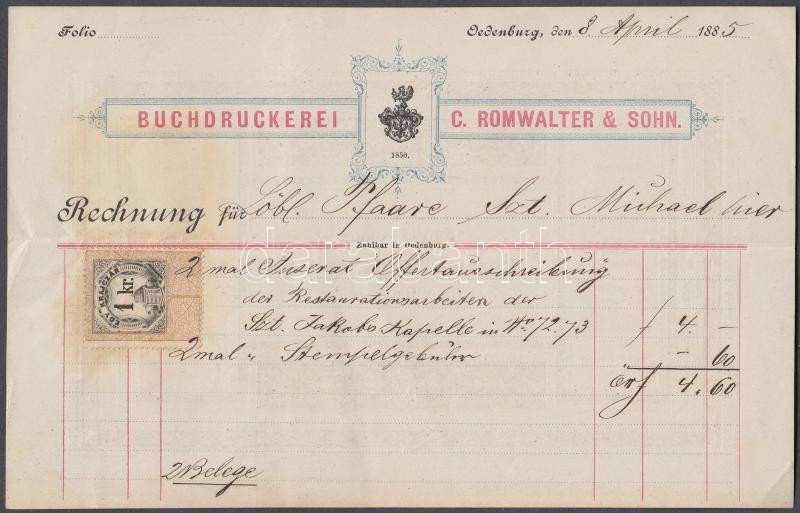 Folio
Oedenburg, den 8 April 1885
BUCHDRUCKEREI C. ROMWALTER & SOHN.
1850.
Rechnung für Löbl. Pfaare Szt. Michael hier
Zahlbar in Oedenburg.
2 mal Inserat Offertausschreibung
der Restaurationsarbeiten der
Szt. Jakobs Kapelle in No 72.73 f 4. –
2 mal " Stempelgebühr – 60
öw f 4. 60
2 Belege
EGY KRAJCZÁR
1 kr.
darabanth